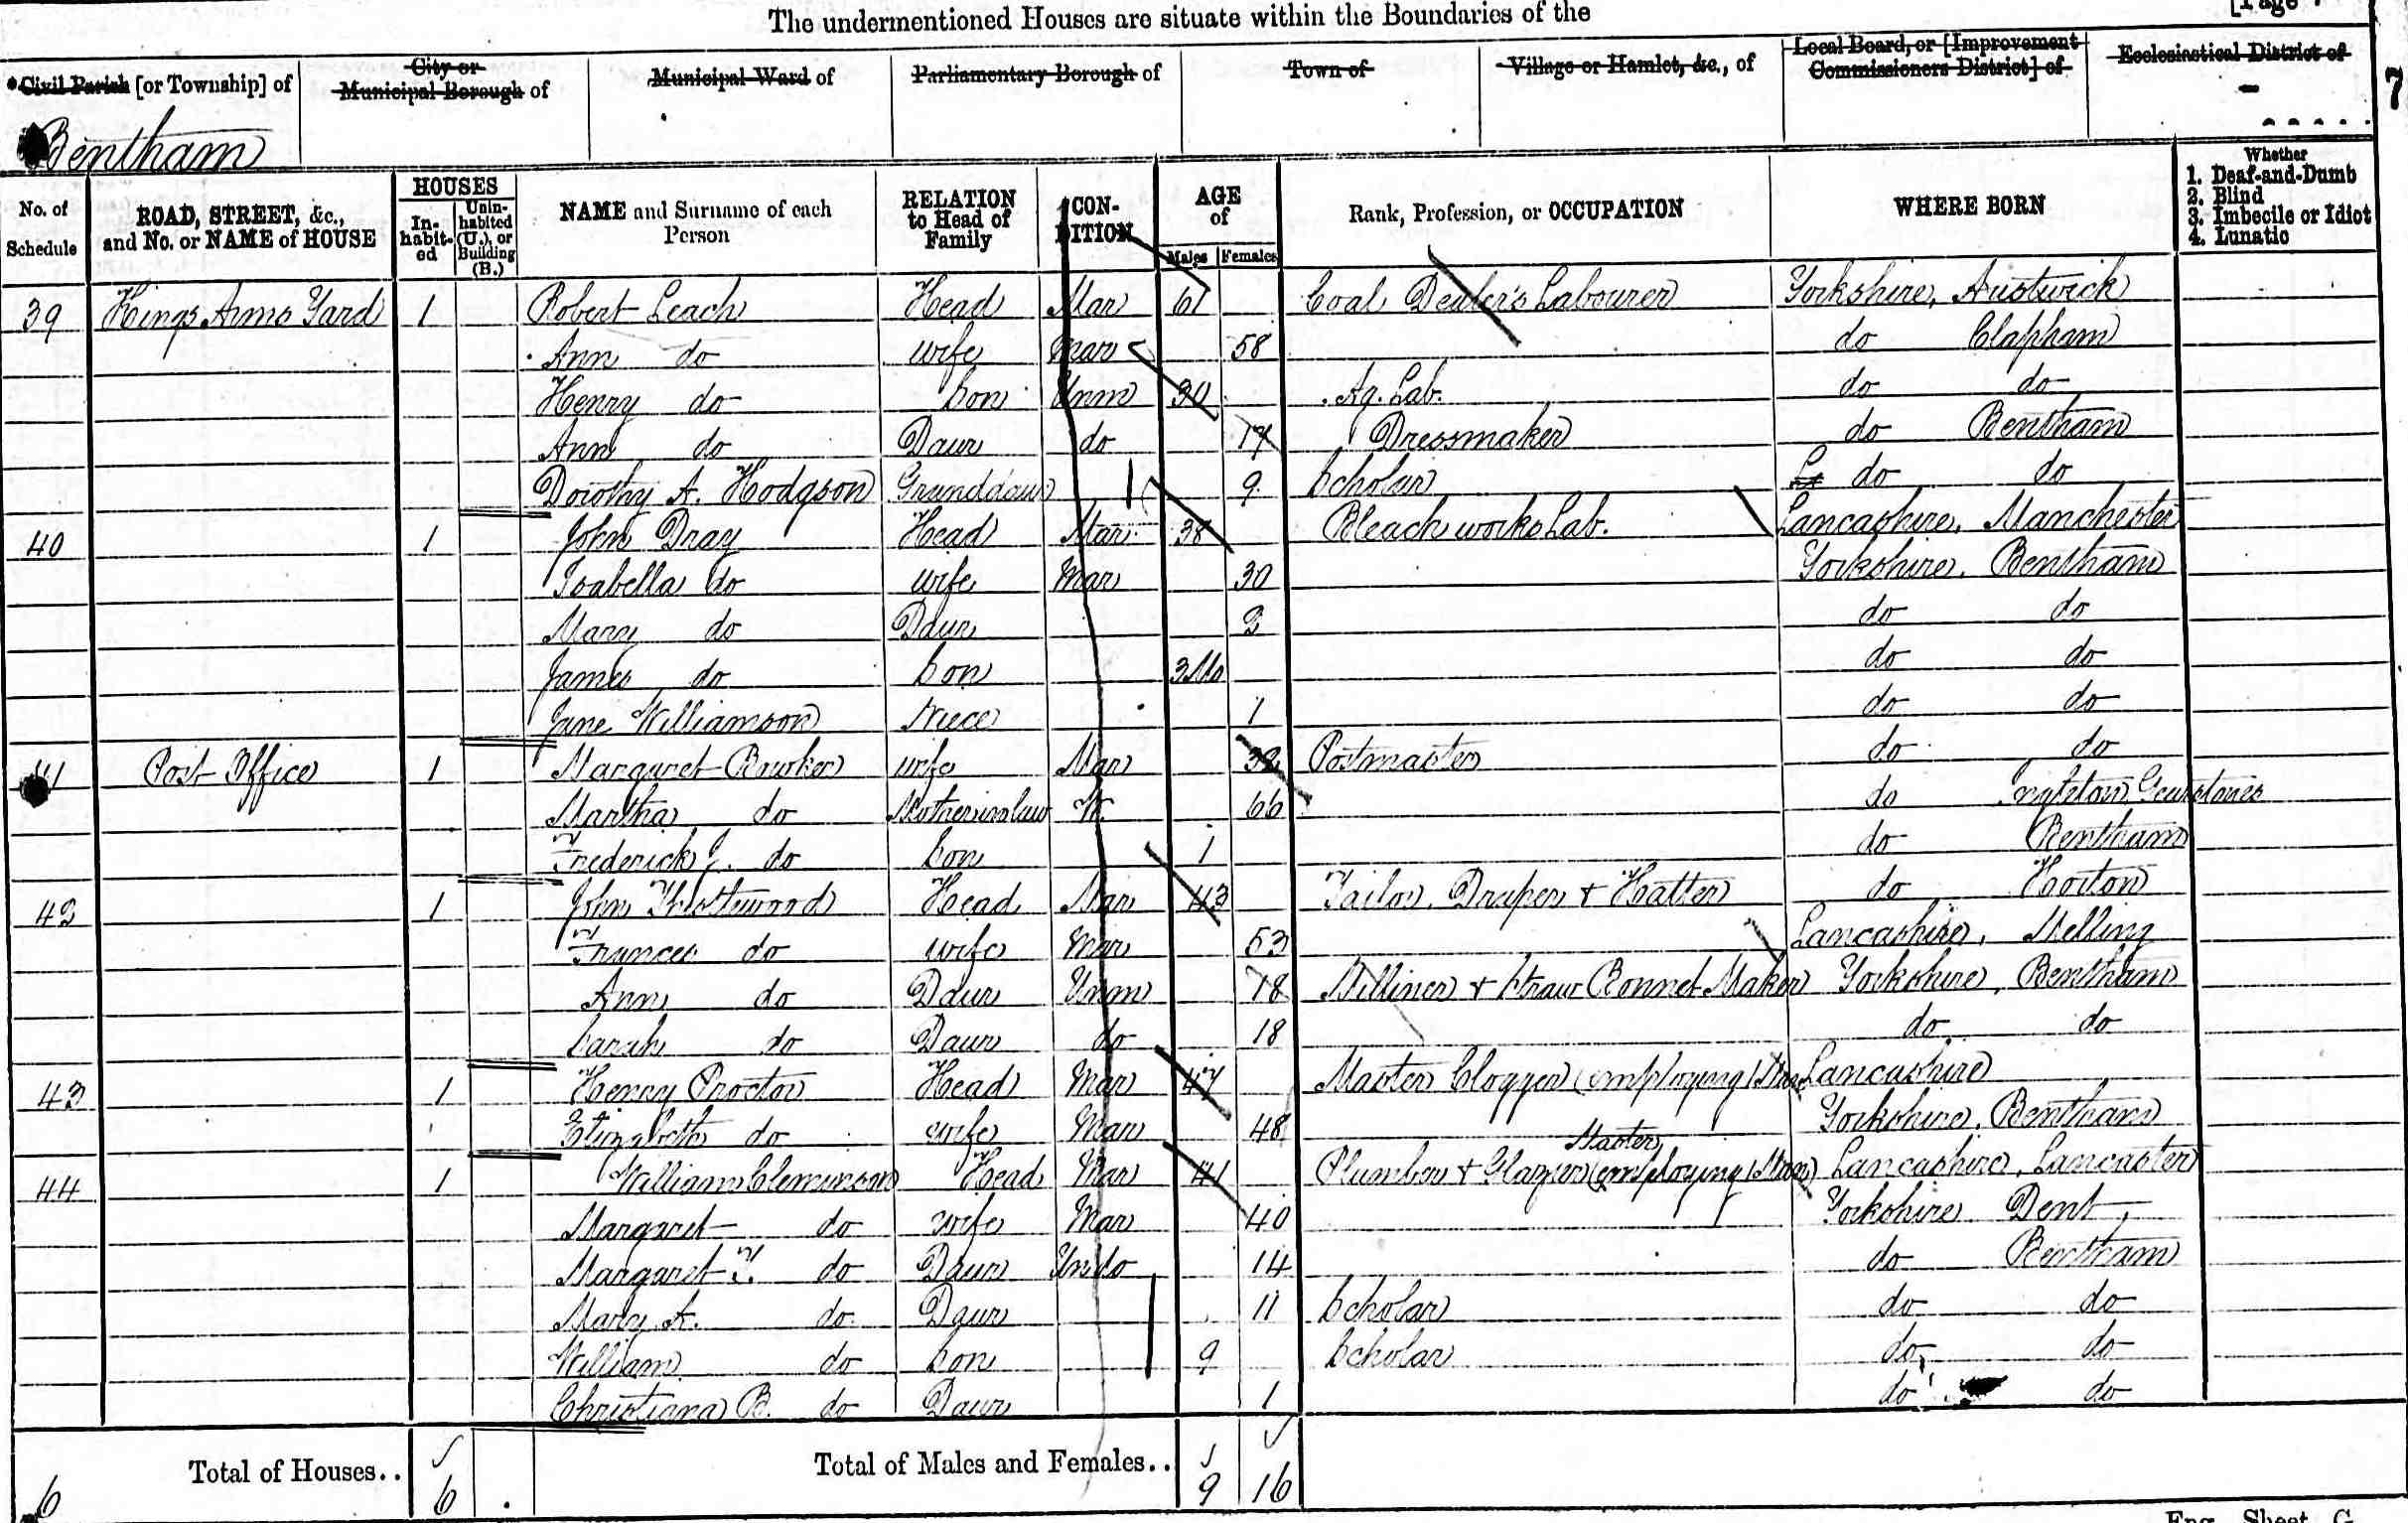 The undermentioned Houses are situate within the Boundaries of the
[Page
Civil Parish [or Township] of
City or Municipal Borough of
Municipal Ward of
Parliamentary Borough of
Town of
Village or Hamlet, &c., of
Local Board, or [Improvement Commissioners District] of
Ecclesiastical District of
7
Bentham
No. of Schedule
ROAD, STREET, &c., and No. or NAME of HOUSE
HOUSES
In-habit-ed
Unin-habited (U.), or Building (B.)
NAME and Surname of each Person
RELATION to Head of Family
CON-DITION
AGE of
Males Females
Rank, Profession, or OCCUPATION
WHERE BORN
Whether
1. Deaf-and-Dumb
2. Blind
3. Imbecile or Idiot
4. Lunatic
39 Kings Arms Yard 1 Robert Leach Head Mar 61 Coal Dealer's Labourer Yorkshire, Austwick
Ann do wife Mar 58 do Clapham
Henry do Son Unm 30 Ag. Lab. do do
Ann do Daur do 17 Dressmaker do Bentham
Dorothy A. Hodgson Granddaur 9 Scholar do do
40 1 John Dray Head Mar 38 Bleach works Lab. Lancashire, Manchester
Isabella do wife Mar 30 Yorkshire, Bentham
Mary do Daur 2 do do
James do Son 3 Mo do do
Jane Williamson Niece 1 do do
41 Post Office 1 Margaret Bowker wife Mar 32 Postmaster do do
Martha do Motherinlaw W. 66 do Ingleton
Frederick J. do Son 1 do Bentham
42 1 John Head Mar 43 Tailor, Draper & Hatter do Horton
Frances do wife Mar 53 Lancashire, Melling
Ann do Daur Unm 18 Milliner & Straw Bonnet Maker Yorkshire, Bentham
Sarah do Daur do 18 do do
43 1 Henry Proctor Head Mar 47 Master Clogger (employing 1 Man) Lancashire
Elizabeth do wife Mar 48 Yorkshire, Bentham
44 1 William Cleminson Head Mar 41 Plumber & Glazier Master (employing 1 Man) Lancashire, Lancaster
Margaret do wife Mar 40 Yorkshire Dent
Margaret T. do Daur 14 do Bentham
Mary A. do Daur 11 Scholar do do
William do Son 9 Scholar do do
Christiana B. do Daur 1 do do
6 Total of Houses.. 6 Total of Males and Females.. 9 16
Eng. Sheet G.